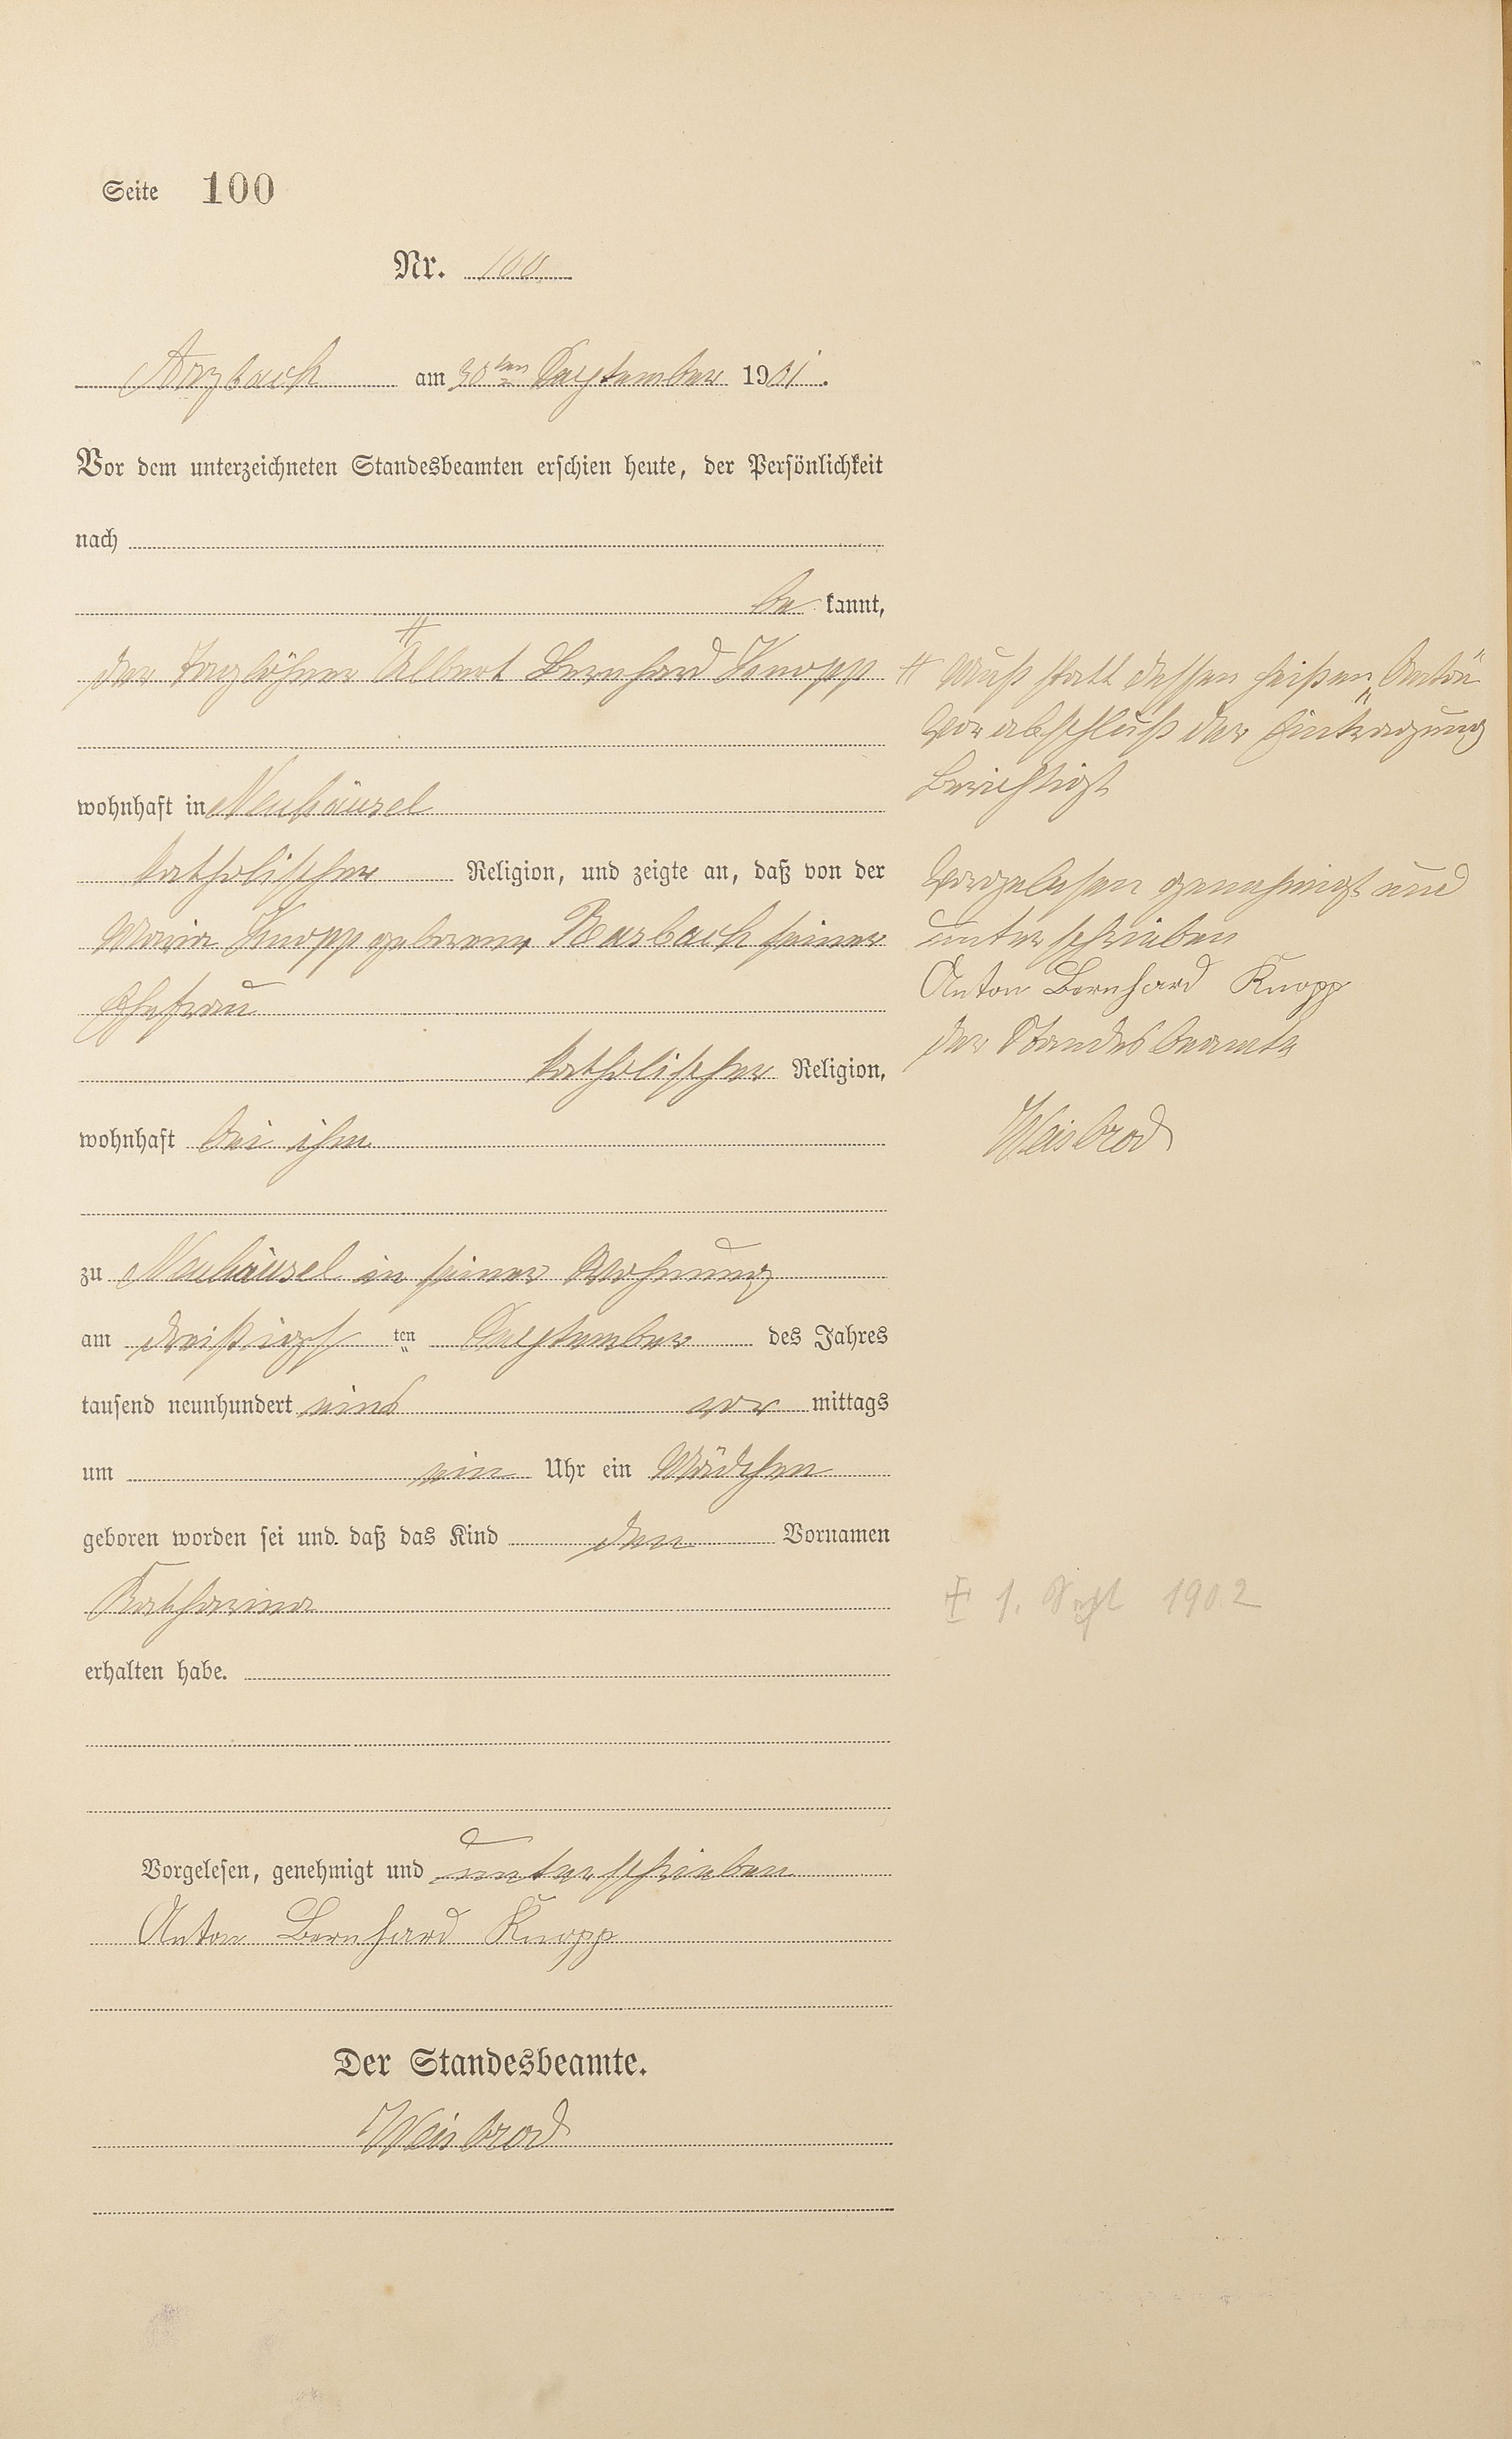 Seite 100
Nr. 100
Arzbach am 30ten September 1901.
Vor dem unterzeichneten Standesbeamten erschien heute, der Persönlichkeit
nach
be kannt,
der Taglöhner # Albert Bernhard Knopp
wohnhaft in Neuhäusel
katholischer Religion, und zeigte an, daß von der
Maria Knopp geborene Busbach seiner
Ehefrau
katholischer Religion,
wohnhaft bei ihm
zu Neuhäusel in seiner Wohnung
am dreißigs ten September des Jahres
tausend neunhundert eins vor mittags
um ein Uhr ein Mädchen
geboren worden sei und daß das Kind den Vornamen
Katharina
erhalten habe.
Vorgelesen, genehmigt und unterschrieben
Anton Bernhard Knopp
Der Standesbeamte.
Weisbrod
# Muß statt dessen heißen „Anton"
Vor abschluß der Eintragung
Berichtigt
Vorgelesen genehmigt und
unterschrieben
Anton Bernhard Knopp
der Standesbeamte
Weisbrod
‡ 1. Sept 1902